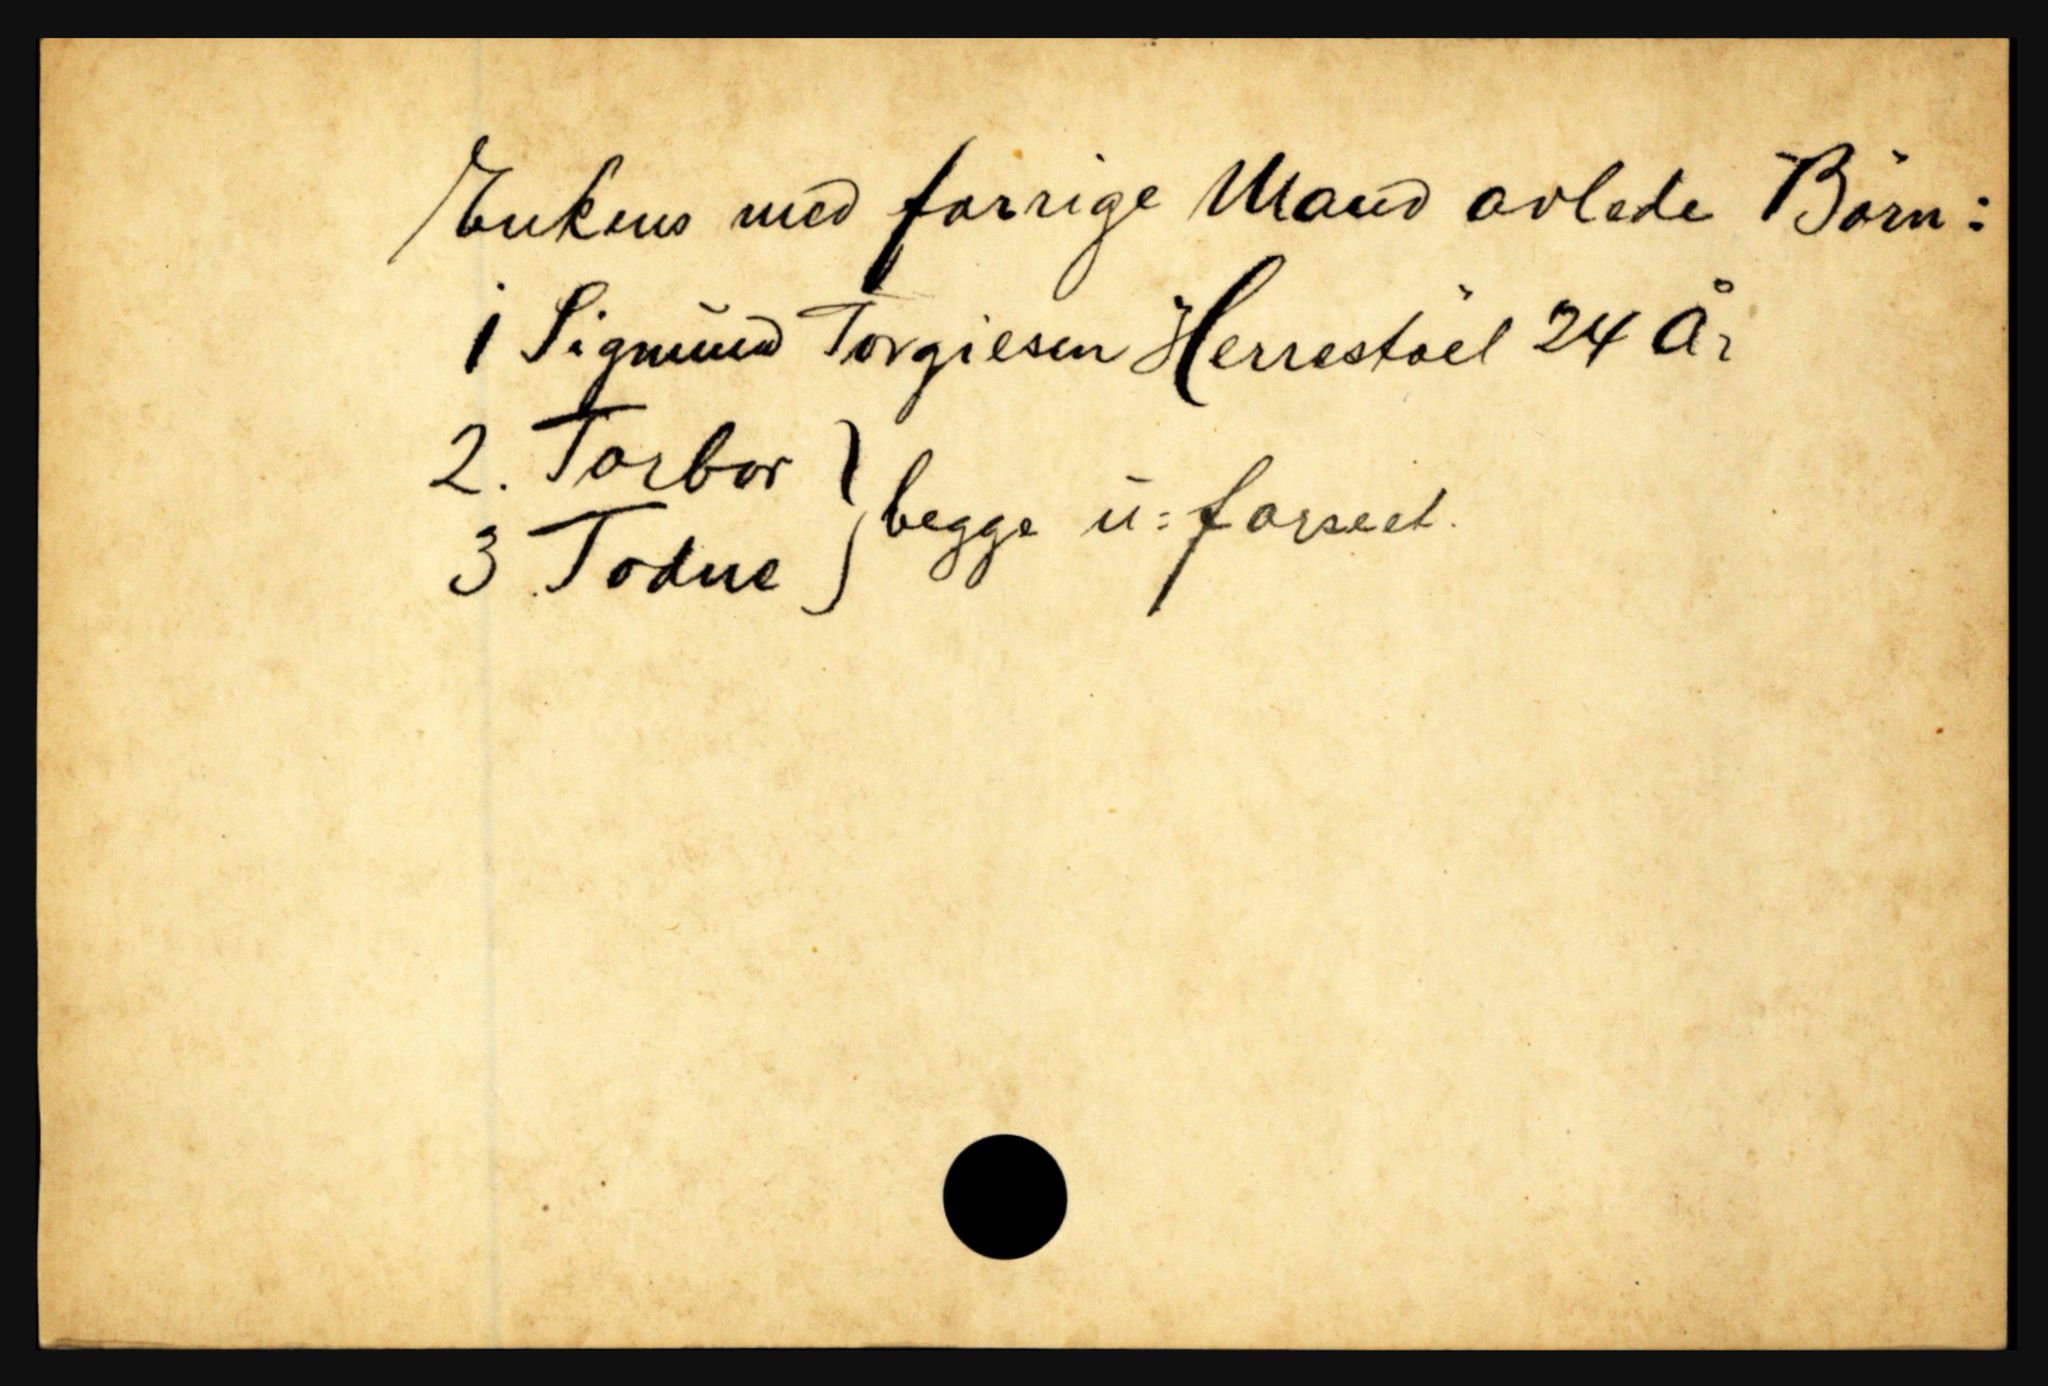 Enkens med forrige Mand avlede Börn:
1 Sigmund Torgiesen Herrestöel 24 År
2. Torbor } begge u=forseet.
3. Todne